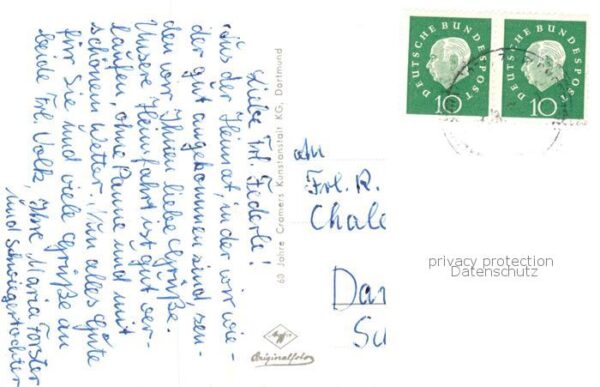 Liebe Frl. Federle!
Aus der Heimat, in der wir wie-
der gut angekommen sind, sen-
den wir Ihnen liebe Grüße.
Unsere Heimfahrt ist gut ver-
laufen, ohne Panne und mit
schönem Wetter. Nun alles Gute
für Sie und viele Grüße an
beide Frl. Volk, Ihre Maria Forster
und Schwiegertochter
60 Jahre Cramers Kunstanstalt KG, Dortmund
Agfa
Originalfoto
DEUTSCHE BUNDESPOST
10
DEUTSCHE BUNDESPOST
10
An
Frl. R.
Chale
Dar
Sc
privacy protection
Datenschutz